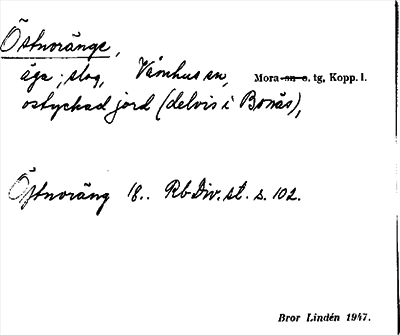 Östnoränge,
äga; slog, Våmhus sn, Mora sn o. tg, Kopp. l.
ostyckad jord (delvis i Bonäs),
Östnoräng 18.. Rb Div. st. s. 102.
Bror Lindén 1947.